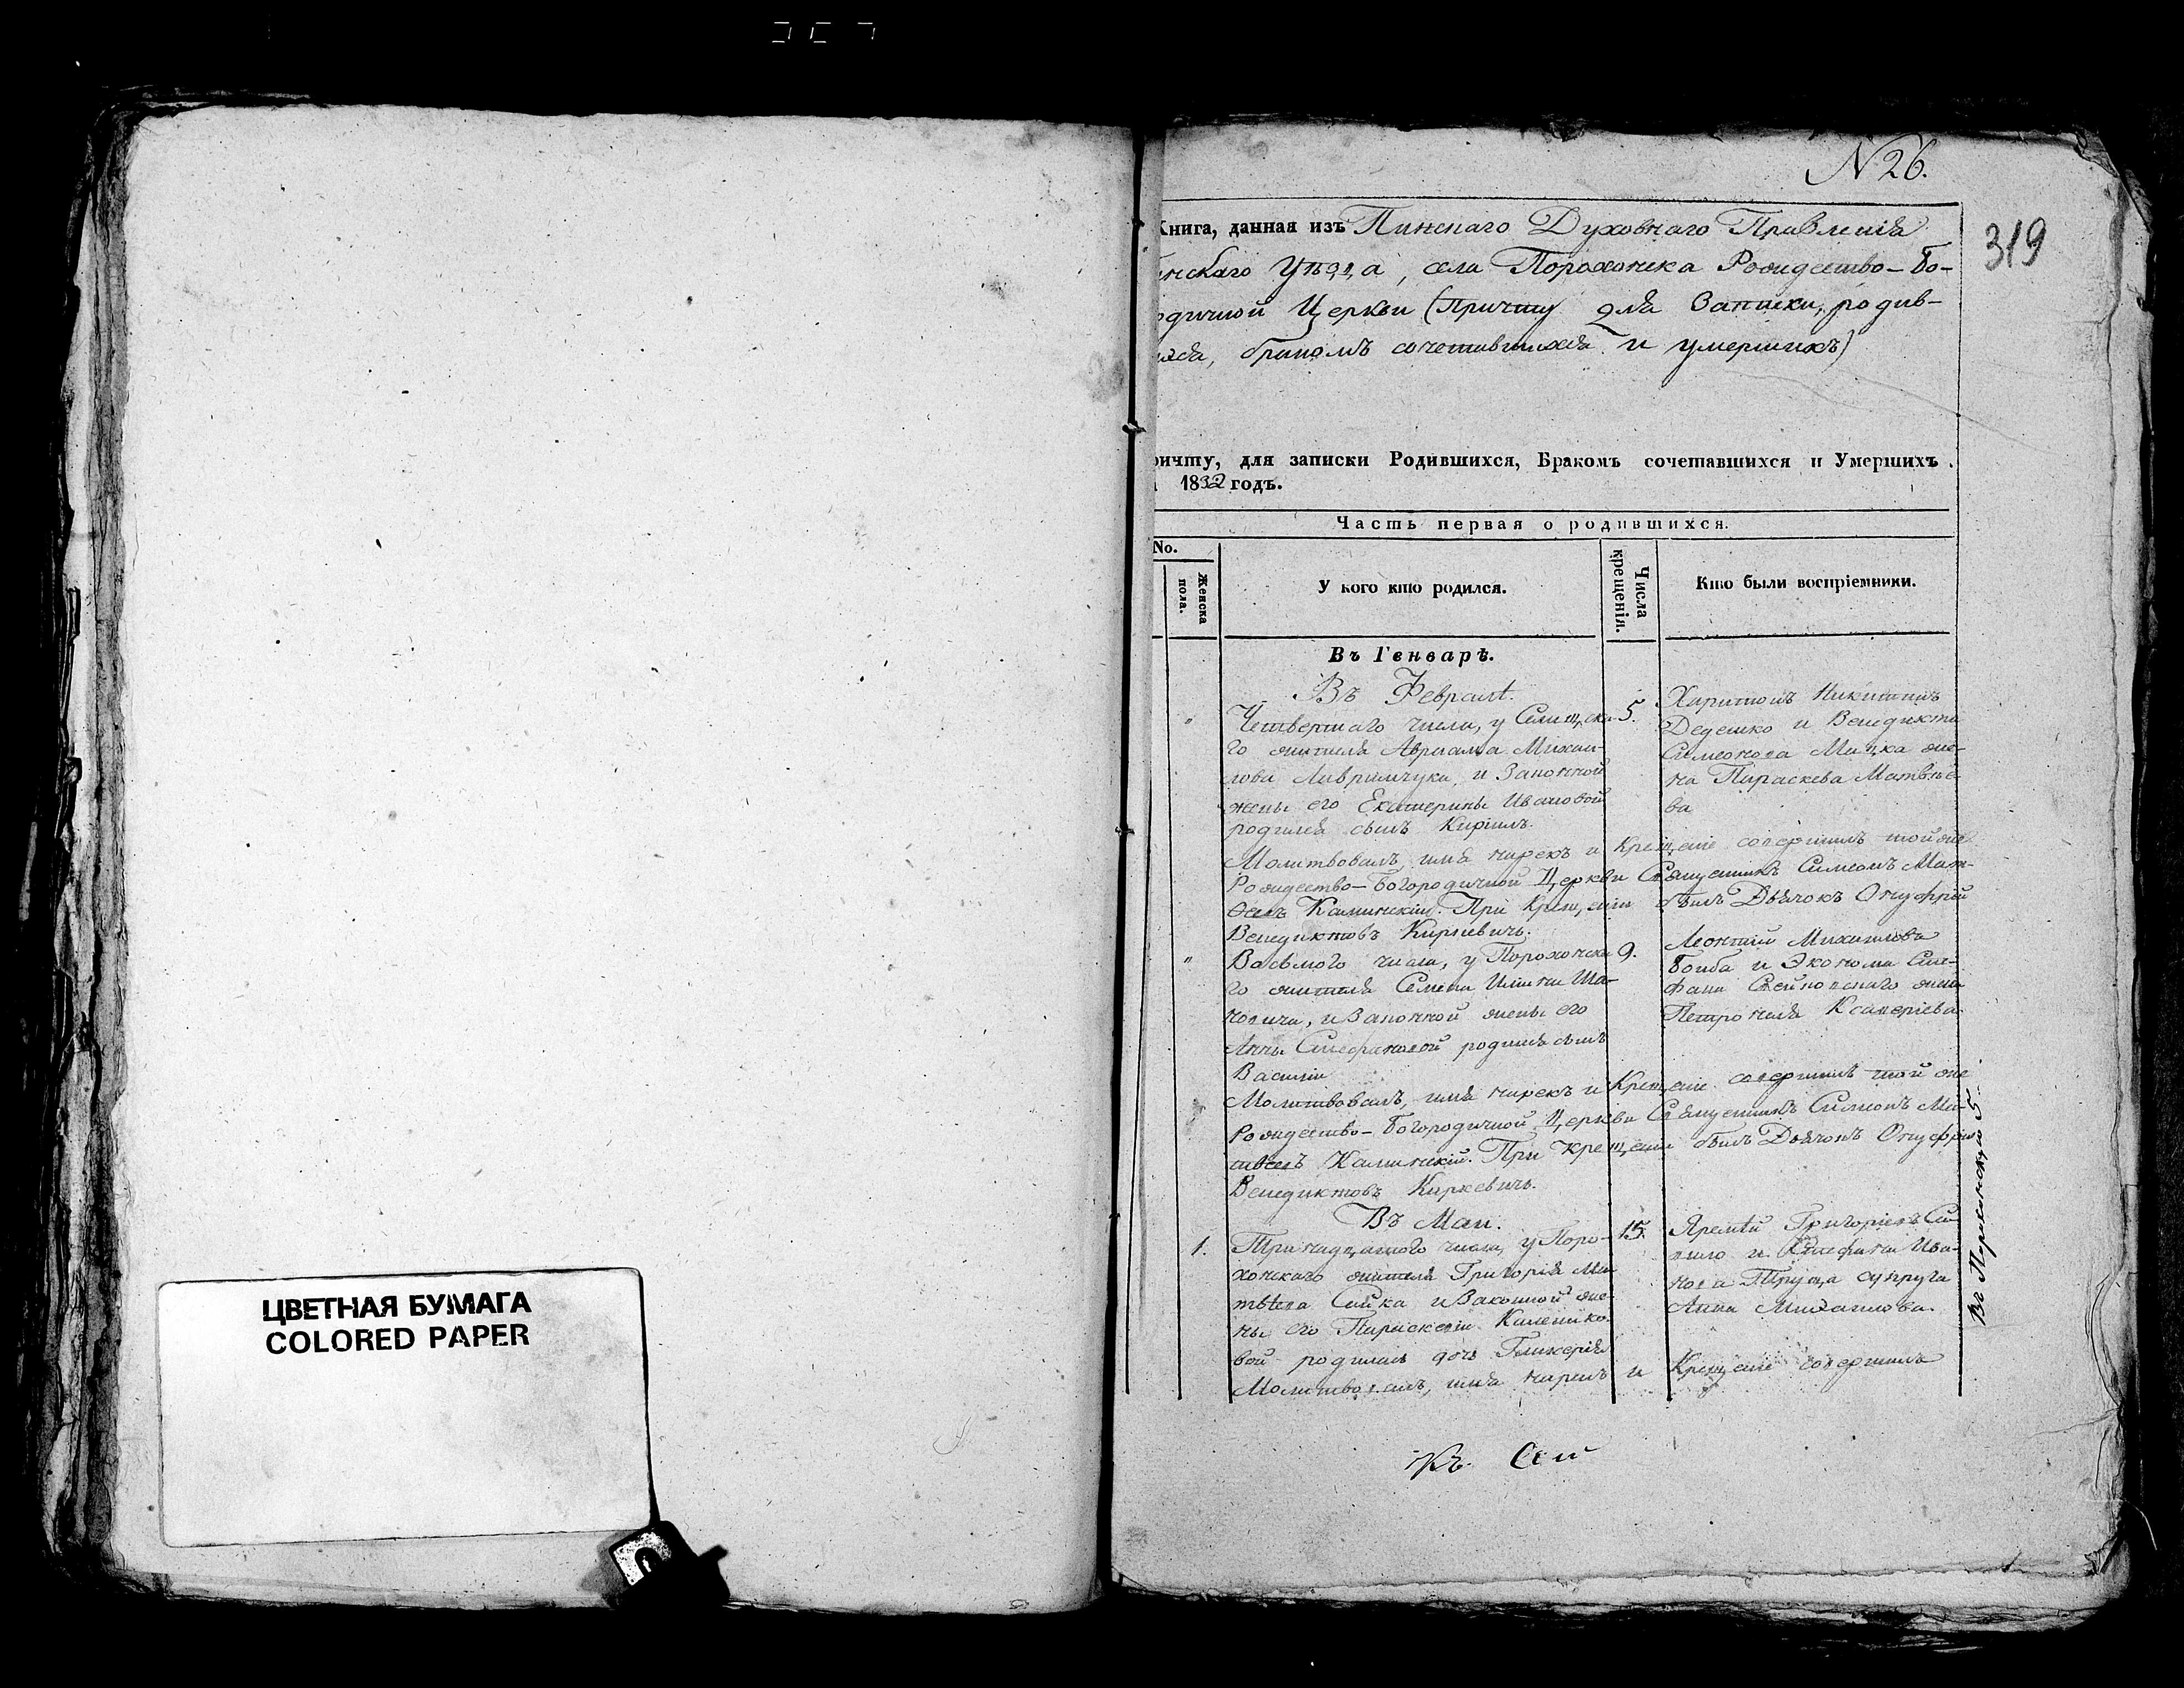 N 26.
319
Книга, данная изъ Пинскаго Духовнаго Правленія
инскаго Уѣзда, села Порохонска Рождество-Бо-
родичной Церкви (Причту для Записки, родив-
ихся, бракомъ сочетавшихся и умершихъ)
ричту, для записки Родившихся, Бракомъ сочетавшихся и Умершихъ
1832 годъ.
Часть первая о родившихся.
No.
Женска пола.
У кого кто родился.
Числа крещенія.
Кто были воспріемники.
Въ Генварѣ.
Въ Февралѣ.
Четвертаго числа, у Селищска-
го жителя Авраама Михаи-
лова и Законной
жены его Екатерины Ивановой
родился сынъ Кирилъ.
5.
Харитонъ Никитинъ
Дедешко и Венедикта
Симеонова Мацка же-
на Параскева Матвѣе-
ва
Молитвовалъ, имя нарекъ и Крещеніе совершилъ той же
Рождество-Богородичной Церкви Священникъ Симеонъ Мат-
Каминскій. При Крещеніи былъ Дьячокъ Онуфрій
Венедиктовъ Киркевичъ.
Восьмого числа, у Порохонска-
го жителя Семена Ильина Ша-
новича, и Законной жены его
Анны Стефановой родился сынъ
Василій
9.
Леонтій Михаилова
Боиба и Эконома Сте-
фана жена
Петронеля Ксаверіева
Молитвовалъ, имя нарекъ и Крещеніе совершилъ той же
Рождество-Богородичной Церкви Священникъ Симеонъ Ма-
Каминскій. При Крещеніи былъ Дьячокъ Онуфрій
Венедиктовъ Киркевичъ.
Въ Маи.
1.
Тринадцатого числа, у Поро-
хонскаго жителя Григорія Ма-
твѣева Сайка и Законной же-
ны его Параскевіи
вой родилась дочь Гликерія
15.
Яремѣй Григоріевъ Са-
и Стефана Ива-
нова супруга
Анна Михаилова.
Молитвовалъ, имя нарекъ и Крещеніе совершилъ
Въ Порохонску 5.
Къ Сей
ЦВЕТНАЯ БУМАГА
COLORED PAPER